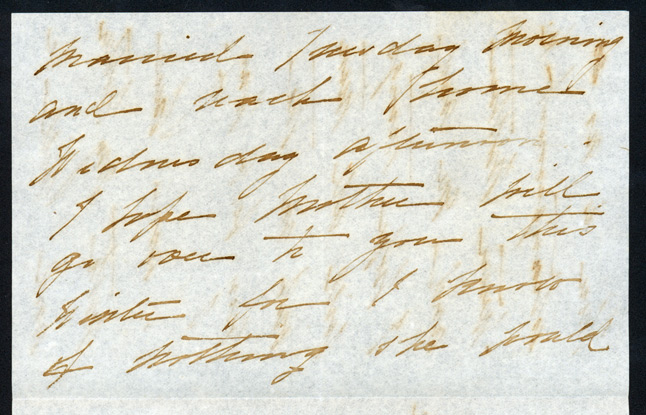 married Tuesday morning
and reach home
Wednesday afternoon.
I hope Mother will
go over to you this
Winter for I know
of nothing she would